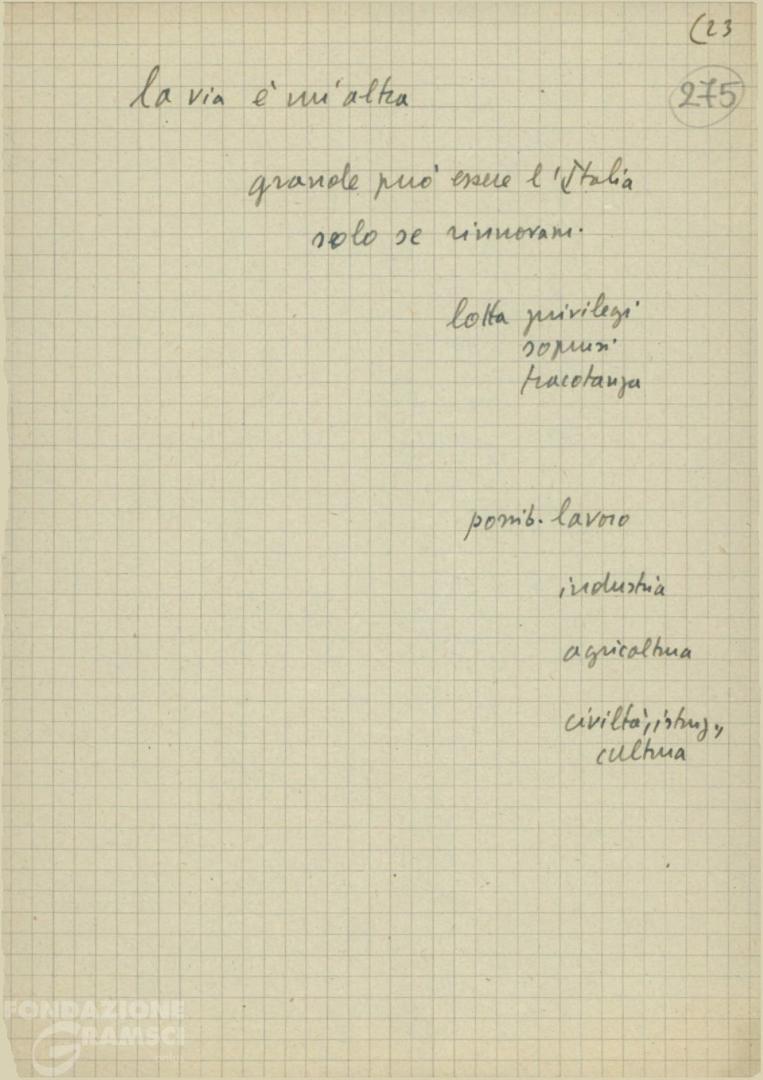 (23
275
la via è un'altra
grande può essere l'Italia
solo se rinnovam.
lotta privilegi
soprusi
tracotanza
possib. lavoro
industria
agricoltura
civiltà, istruz.,
cultura
FONDAZIONE
GRAMSCI